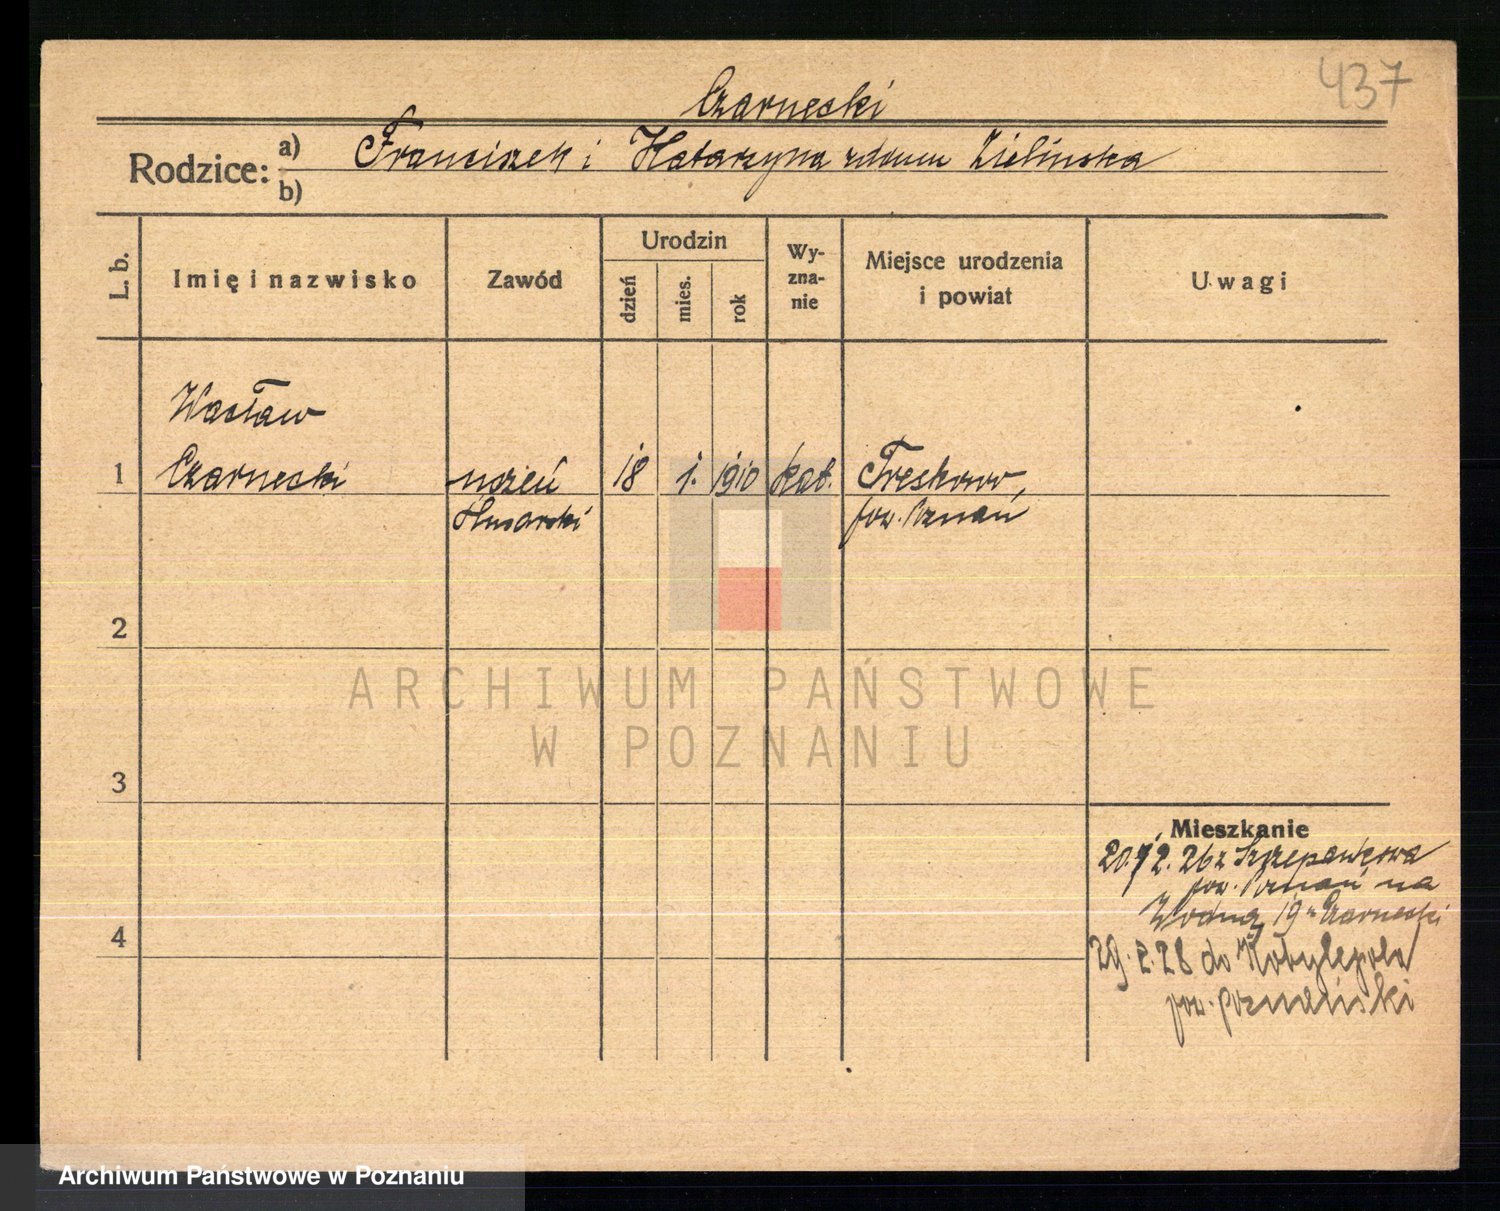 437
Czarnecki
Rodzice: a) Franciszek i Katarzyna zdomu Zielinska
b)
L. b.
Imię i nazwisko
Zawód
Urodzin
dzień
mies.
rok
Wy-
zna-
nie
Miejsce urodzenia
i powiat
Uwagi
Wacław
1 Czarnecki uczeń 18 1. 1910 kat. Treskowo,
ślusarski pow. Poznań
2
3
4
Mieszkanie
20. 2. 26 z Szczepankowa
pow. Poznań na
Wodną 19 Czarnecki
29. 2. 28 do Kobylepola
pow. poznański
ARCHIWUM PAŃSTWOWE
W POZNANIU
Archiwum Państwowe w Poznaniu